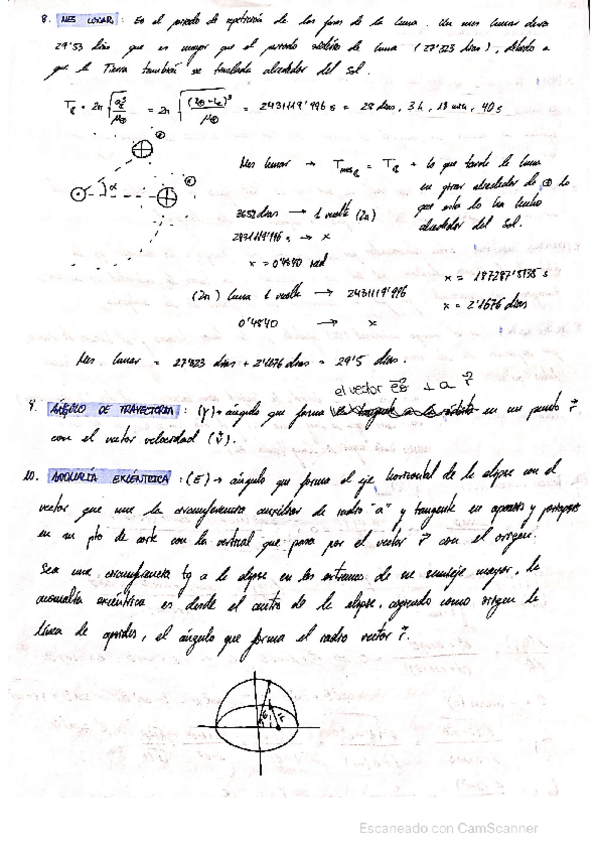 8. MES LUNAR : Es el periodo de repetición de las fases de la luna. Un mes lunar dura
29'53 días que es mayor que el periodo sidéreo de luna (27'323 días), debido a
que la Tierra también se traslada alrededor del Sol.
= 2431119'996 s = 28 días, 3 h, 18 min, 40 s
Mes lunar → = + lo que tarda la luna
en girar alrededor de ⊕ lo
que esta lo ha hecho
alrededor del Sol.
α
365'2 días → 1 vuelta (2π)
2431119'996 s → x
x = 0'4840 rad
x = 187287'5135 s
(2π) luna 1 vuelta → 2431119'996
x = 2'1676 días
0'4840 → x
Mes lunar = 27'323 días + 2'1676 días = 29'5 días.
el vector ⊥ a r⃗
9. ÁNGULO DE TRAYECTORIA : (γ) → ángulo que forma en un punto r⃗
con el vector velocidad (v⃗).
10. ANOMALÍA EXCÉNTRICA : (E) → ángulo que forma el eje horizontal de la elipse con el
vector que une la circunferencia auxiliar de radio "a" y tangente en apoapsis y periapsis
en su pto de corte con la vertical que pasa por el vector r⃗ con el origen.
Sea una circunferencia tg a la elipse en los extremos de su semieje mayor, la
anomalía excéntrica es desde el centro de la elipse, cogiendo como origen la
línea de ápsides, el ángulo que forma el radio vector r⃗.
Escaneado con CamScanner